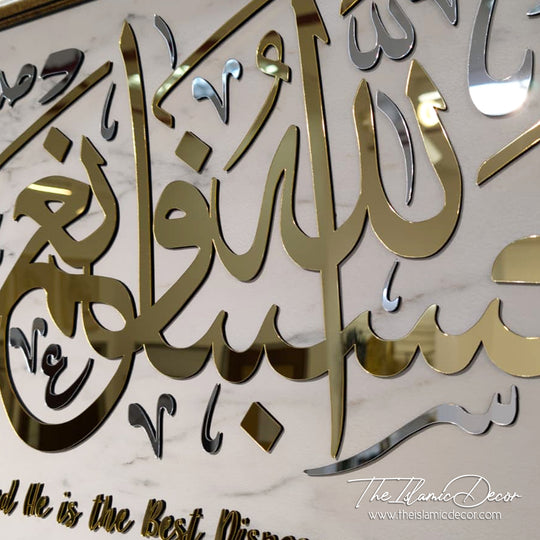 حسبنا الله ونعم
nd He is the Best
The Islamic Decor
www.theislamicdecor.com